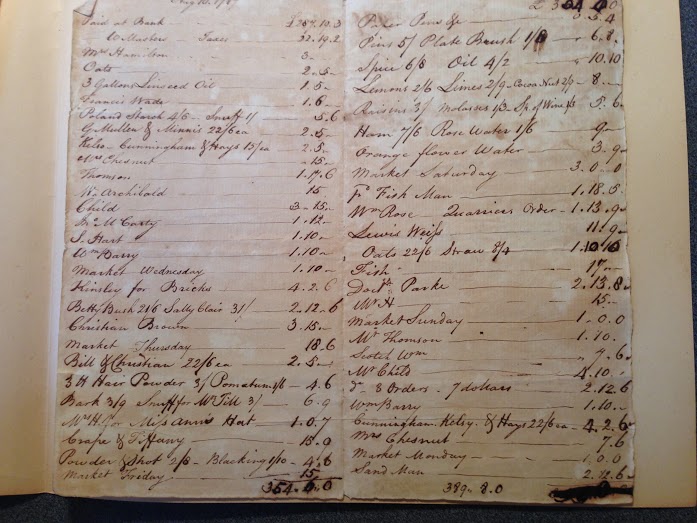 Paid at Bank
W Masters - Taxes 22.19.2
Mrs Hamilton 3
Oats 2.5
3 Gallons Linseed Oil 1.5
Francis Wade 1.6
Poland Starch 4/6 - Snuff 1/ 5.6
G. Mullen & Minnis 22/6 ea 2.5
Kelso - Cunningham & Hays 15/ea 2.5
Mrs Chesnut 15
Thomson 1.17.6
Archibald 15
Child 3.15
McCarty 1.12
S. Hart 1.10
Wm Barry 1.10
Market Wednesday 1.10
Kinsley for Bricks 4.2.6
Betty Bush 21/6 Sally Clair 31/ 2.12.6
Christian Brown 3.15
Market Thursday 18.6
Bill & Christian 22/6 ea 2.5
3 lb Hair Powder 3/ Pomatum 1/6 4.6
Bark 3/9 Snuff for Mr Till 3/ 6.9
Mrs H. for Miss Ann's Hat 1.0.7
Crape & Tiffany 15.9
Powder & Shot 2/8 - Blacking 1/10 4.6
Market Friday 15
354.0.0
£ 354.0.0
Paper Pins & 3.4
Pins 5/ Plate Brush 1/8 6.8
Spice 6/8 Oil 4/2 10.10
Lemons 2/6 Limes 2/9 - Cocoa Nut 2/9 8
Raisins 3/ Molasses 1/3 - Sp. of Wine 1/3 5.6
Ham 7/6 Rose Water 1/6 9
Orange flower Water 3.9
Market Saturday 3.0.0
Fish Man 1.18.8
Wm Rose - Quarriers Order 1.13.9
Lewis Weiss 11.9
Oats 22/6 Straw 8/4 1.10.10
Fish 17
Doctr. Parke 2.13.8
Mr H 15
Market Sunday 1.0.0
Mr Thomson 1.10
Scotch Wm 7.6
Mr Child 4.10
8 Orders - 7 dollars 2.12.6
Wm Barry 1.10
Cunningham Kelsy & Hays 22/6 ea 4.2.6
Mrs Chesnut 7.6
Market Monday 1.0.0
Sand Man 2.12.6
389.8.0